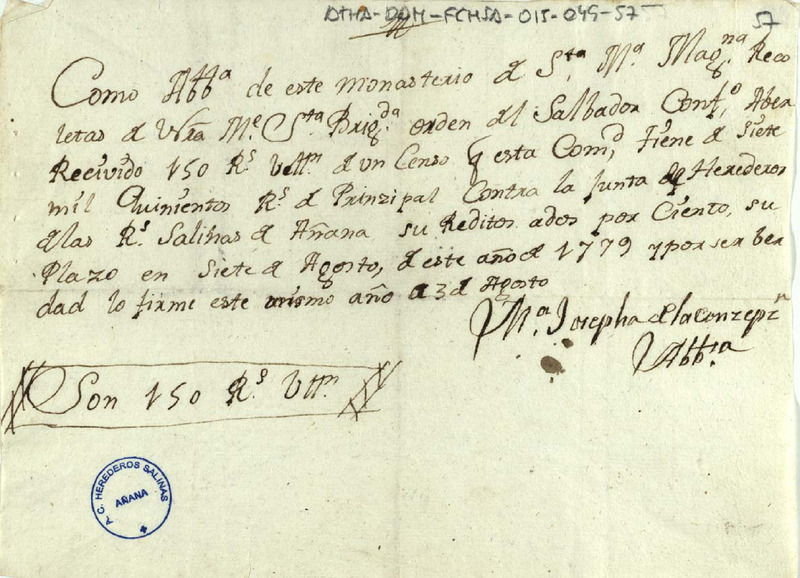 ATHA-DAH-FCHSA-015-049-57
57
Como Abb.ª de este Monasterio d S.ta M.ª Mag.na Reco
letas d Ntra M.e S.ta Brig.da orden del Salbador Conf.o Aber
Recivido 150 R.s Vell.n d un Censo q esta Com.d tiene d siete
mil Quinientos R.s d Prinzipal Contra la Junta de Herederos
dlas R.s Salinas d Añana su Reditos ados por Ciento, su
Plazo en siete d Agosto, d este año d 1779 y por ser ber
dad lo firme este mismo año a 3 d Agosto
M.ª Josepha de la Conzepz.n
Abb.sa
Son 150 R.s Vll.n
A.C. HEREDEROS SALINAS
AÑANA